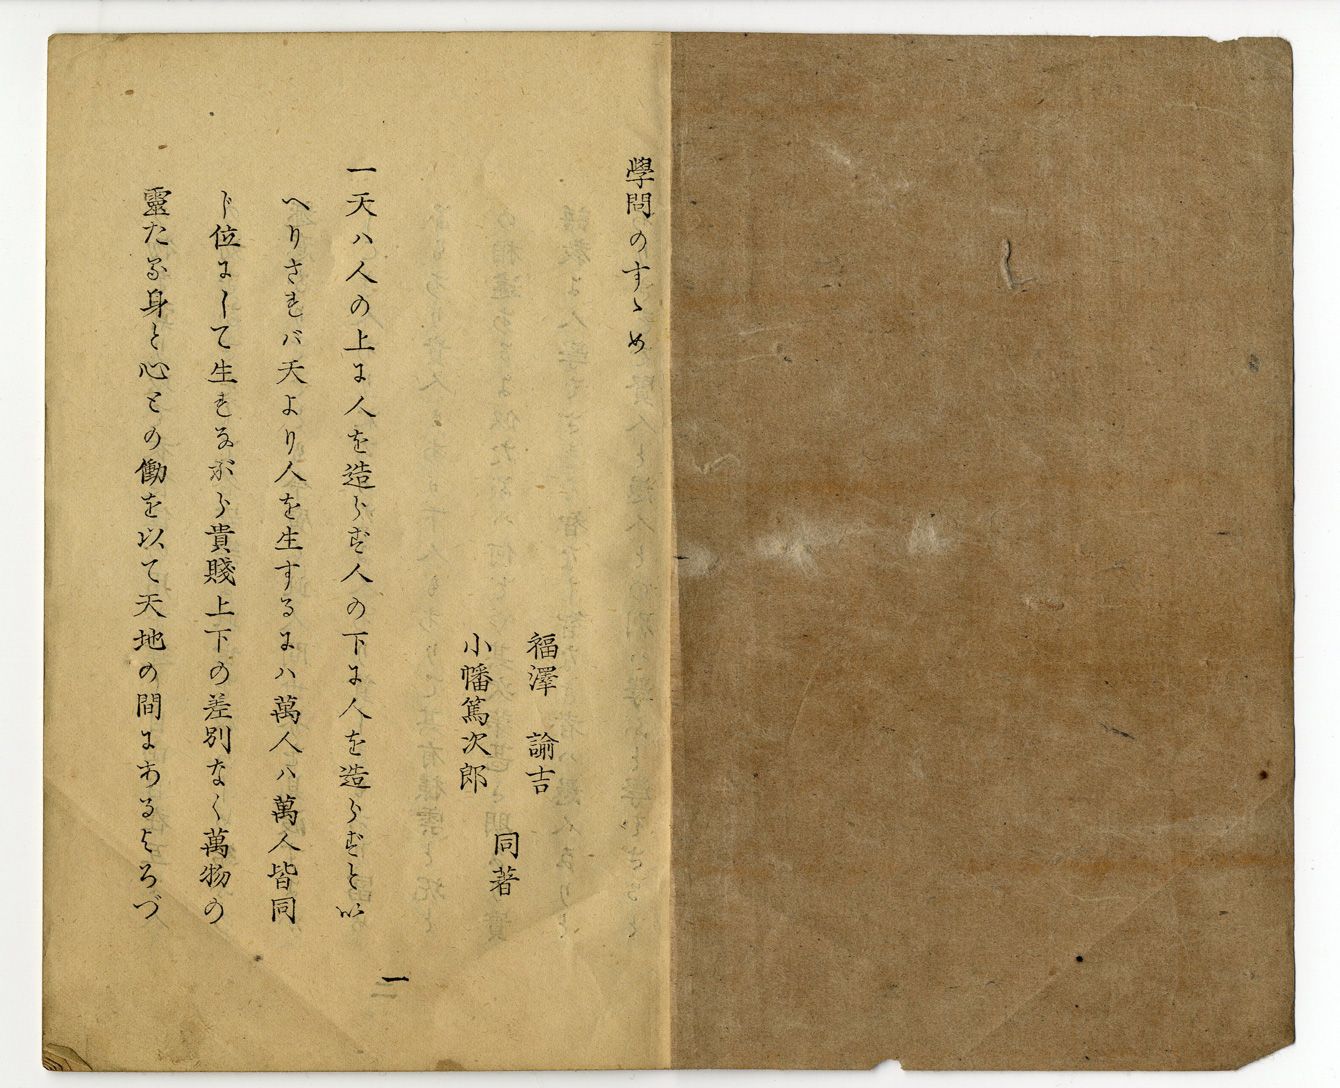 學問のすゝめ
福澤 諭吉
小幡篤次郎
同著
一天ハ人の上に人を造らず人の下に人を造らずと以
へりされバ天より人を生ずるにハ萬人ハ萬人皆同
じ位にして生れながら貴賤上下の差別なく萬物の
靈たる身と心との働を以て天地の間にあるよろづ
一